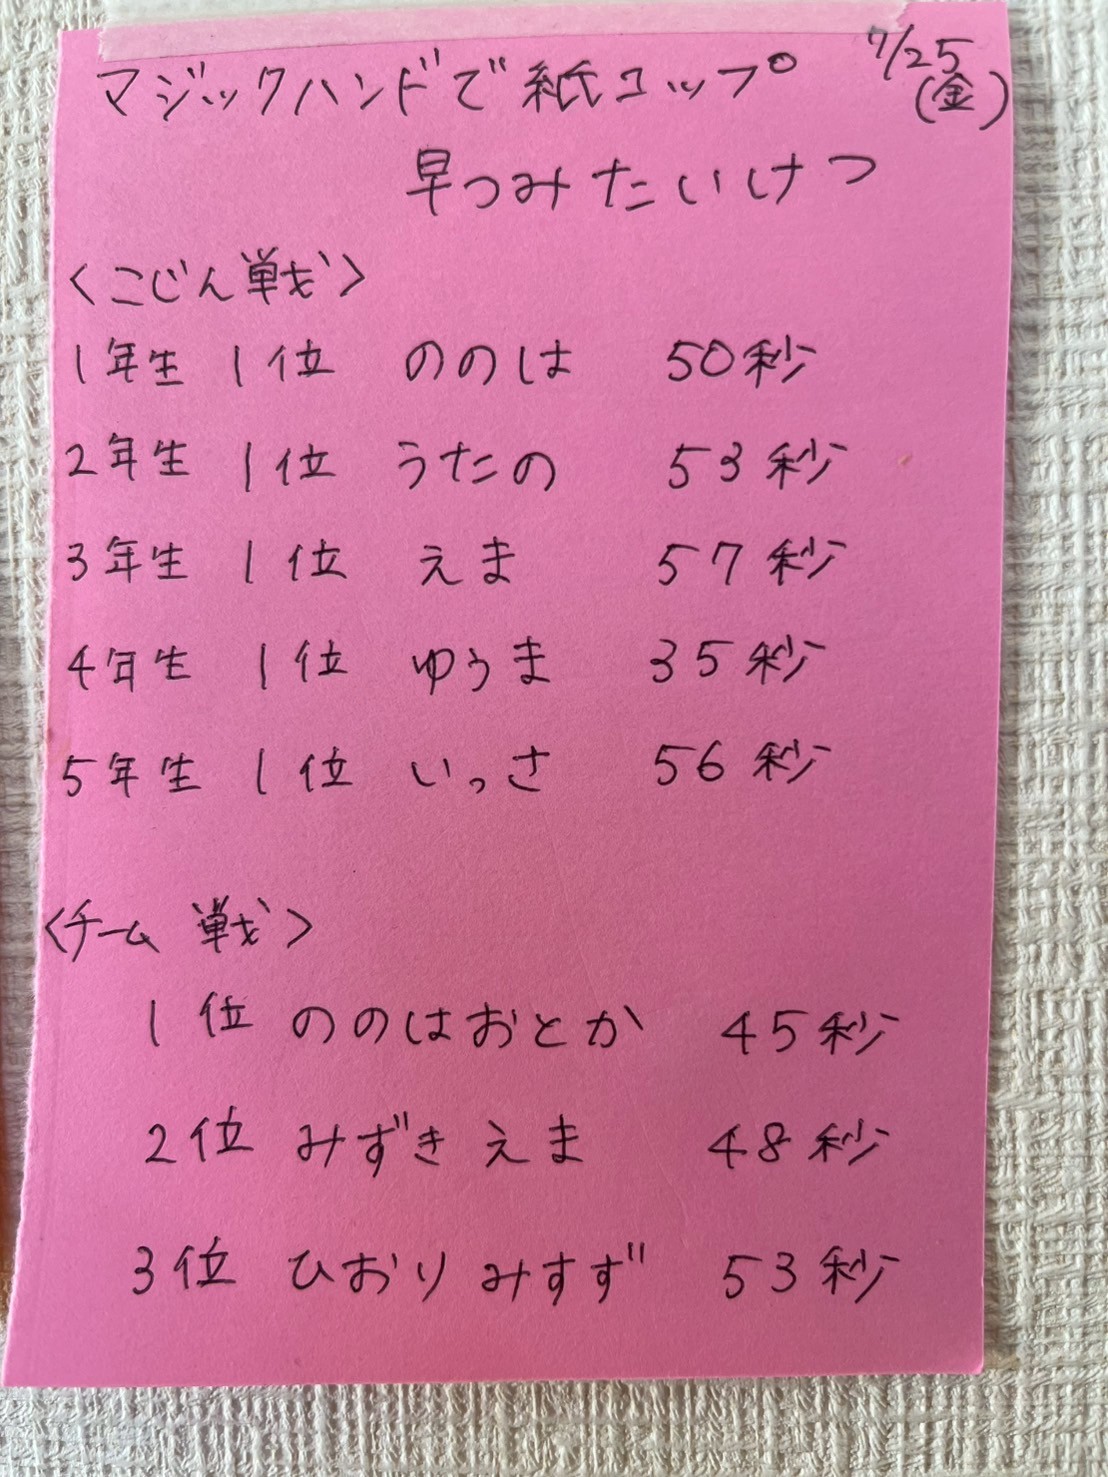 マジックハンドで紙コップ 7/25
(金)
早つみたいけつ
〈こじん戦〉
1年生 1位 ののは 50秒
2年生 1位 うたの 53秒
3年生 1位 えま 57秒
4年生 1位 ゆうま 35秒
5年生 1位 いっさ 56秒
〈チーム戦〉
1位 ののはおとか 45秒
2位 みずきえま 48秒
3位 ひおりみすず 53秒